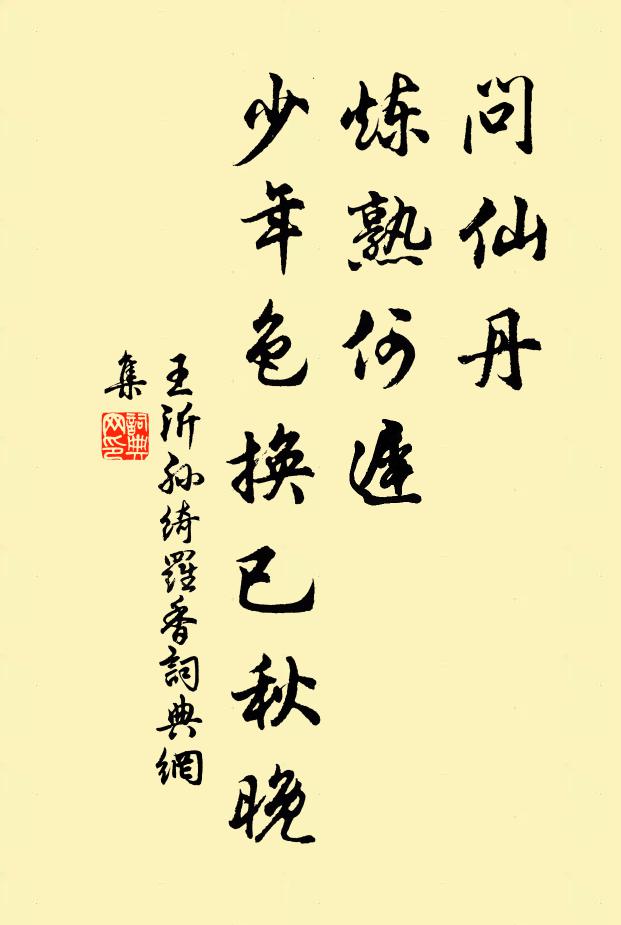 问仙丹
炼熟何遲
少年色换已秋晚
王沂孙绮羅香詞典網
集
詞典
网印